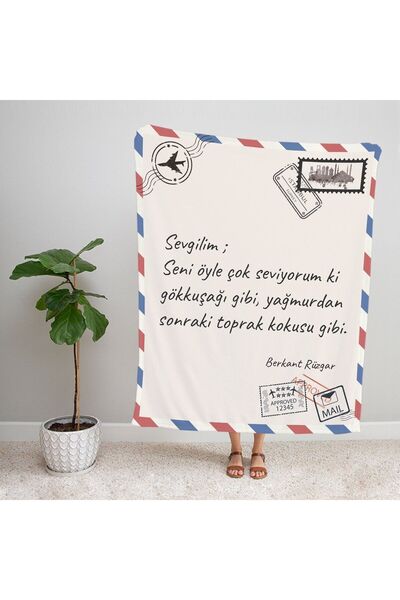 İSTANBUL
Sevgilim ;
Seni öyle çok seviyorum ki
gökkuşağı gibi, yağmurdan
sonraki toprak kokusu gibi.
Berkant Rüzgar
APPROVED
12345
MAIL